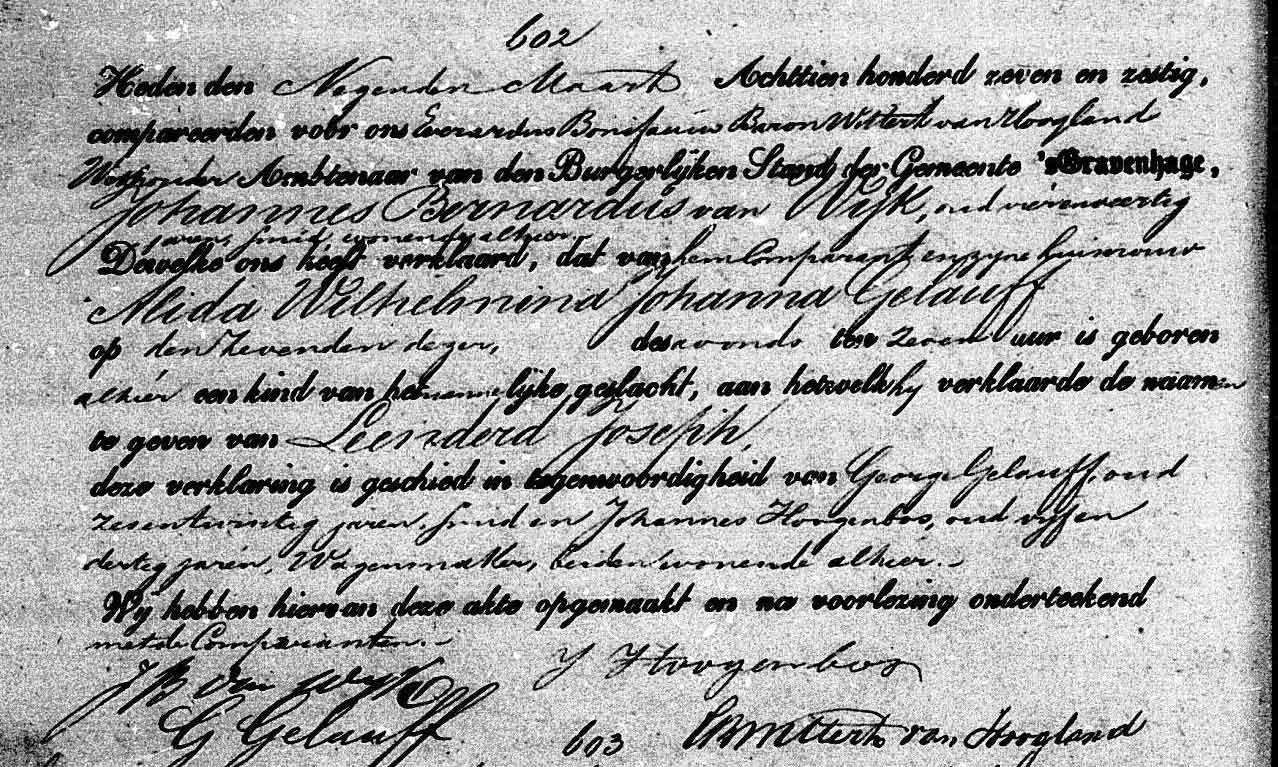 602
Heden den Negenden Maart Achttien honderd zeven en zestig,
compareerden voor ons Everardus Bonifacius Baron Wittert van Hoogland
Wethouder Ambtenaar van den Burgerlijken Stand der Gemeente 'sGravenhage,
Johannes Bernardus van Wijk, oud vierenveertig
jaren, smid, wonende alhier.
Dewelke ons heeft verklaard, dat van hem Comparant en zijne huisvrouw
Alida Wilhelmina Johanna Gelauff
op den Zevenden dezer, des avonds ten Zeven uur is geboren
alhier een kind van het mannelijke geslacht, aan hetwelk hij verklaarde de naamen
te geven van Leenderd Joseph,
deze verklaring is geschied in tegenwoordigheid van George Gelauff, oud
zesentwintig jaren, smid en Johannes Hoogenbos, oud vijf en
dertig jaren, Wagenmaker, beiden wonende alhier.
Wij hebben hiervan deze akte opgemaakt en na voorlezing onderteekend
met de Comparanten.
J Hoogenbos
JB van Wijk
G Gelauff
603
Wittert van Hoogland